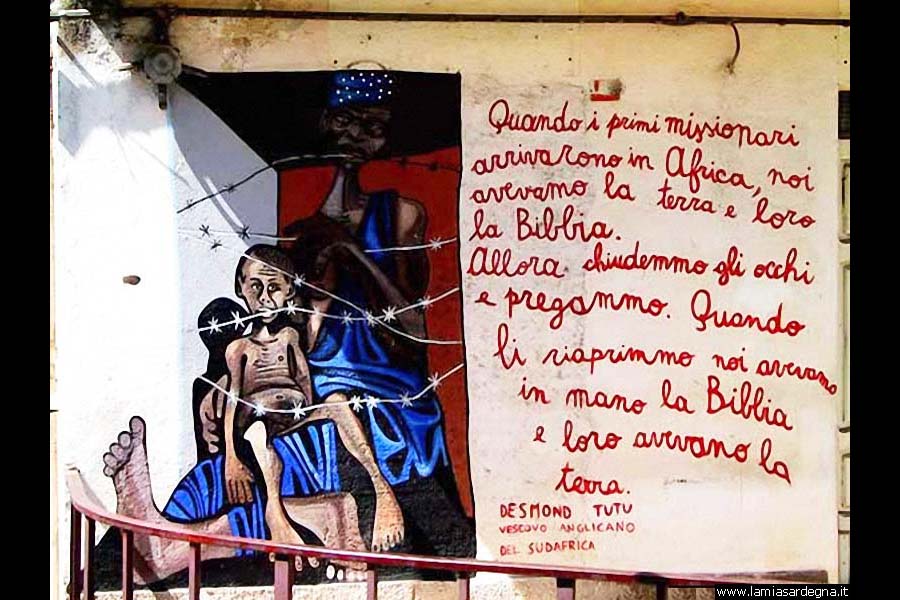 Quando i primi missionari
arrivarono in Africa, noi
avevamo la terra e loro
la Bibbia.
Allora chiudemmo gli occhi
e pregammo. Quando
li riaprimmo noi avevamo
in mano la Bibbia
e loro avevano la
terra.
DESMOND TUTU
VESCOVO ANGLICANO
DEL SUDAFRICA
www.lamiasardegna.it